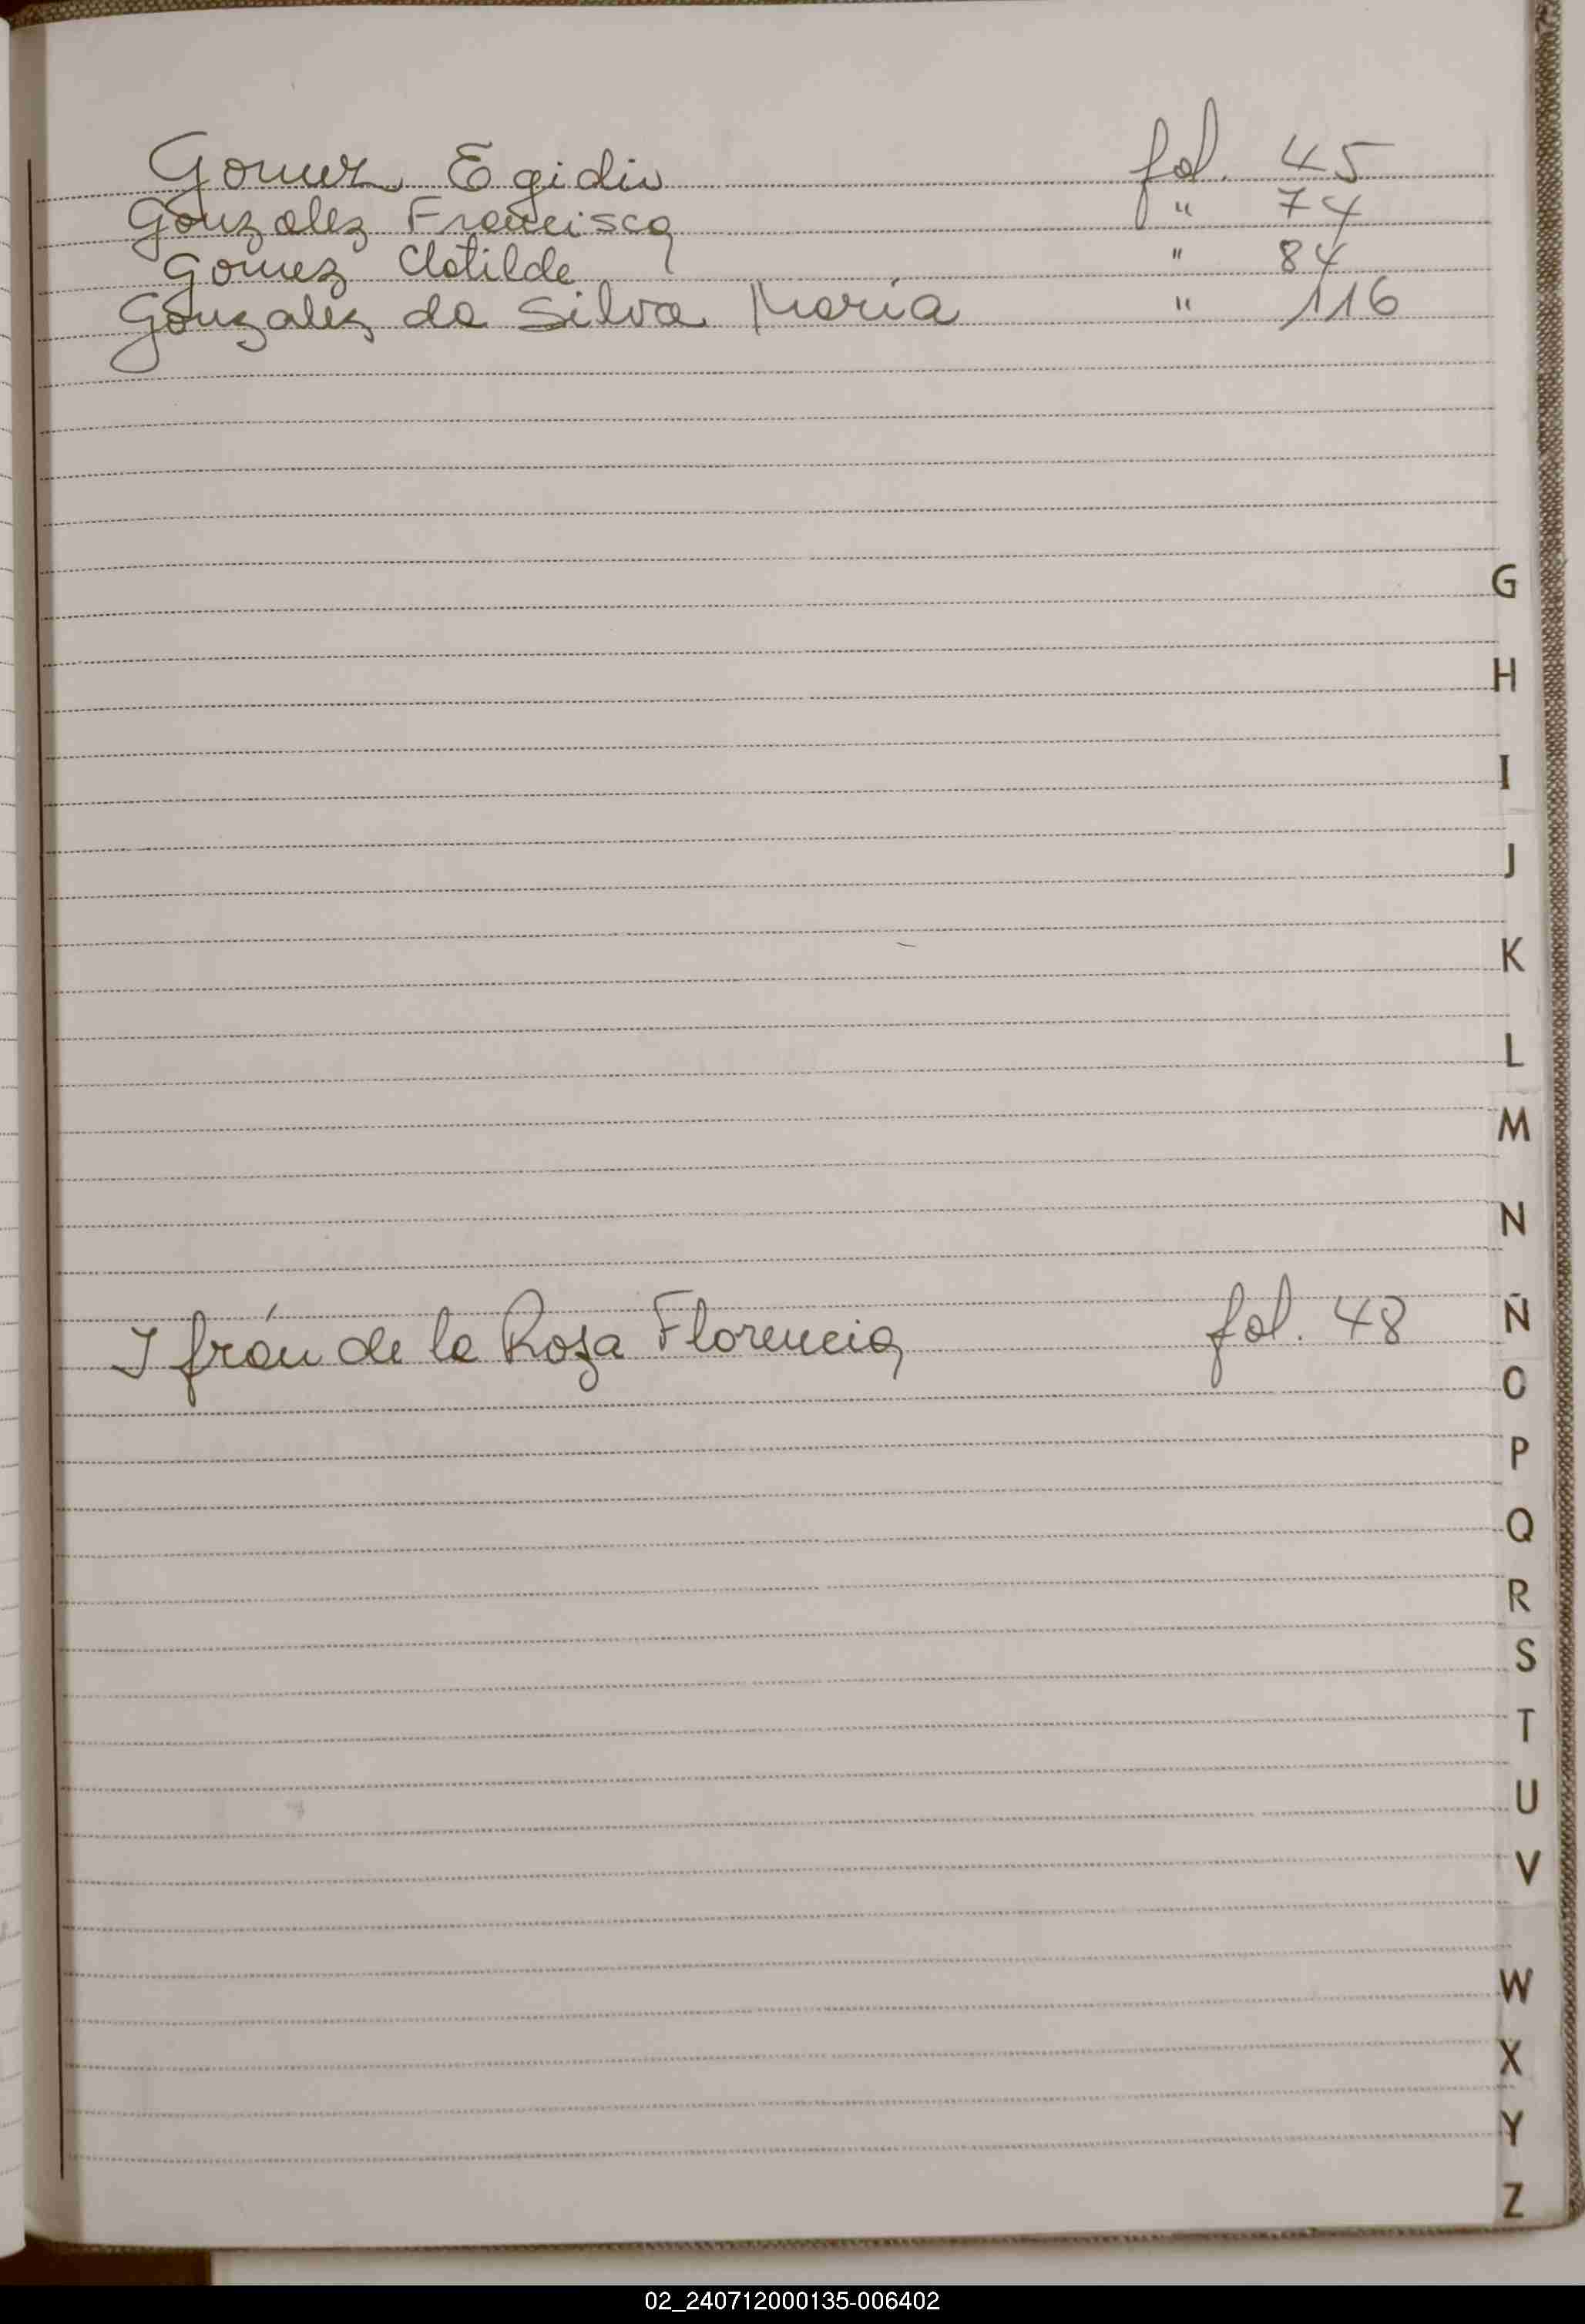 Gomez Egidio fol. 45
Gonzalez Francisca " 74
Gomez Clotilde " 84
Gonzalez da Silva Maria " 116
G
H
I
J
K
L
M
N
Ifrán de la Rosa Florencia fol. 48
Ñ
O
P
Q
R
S
T
U
V
W
X
Y
Z
02_240712000135-006402